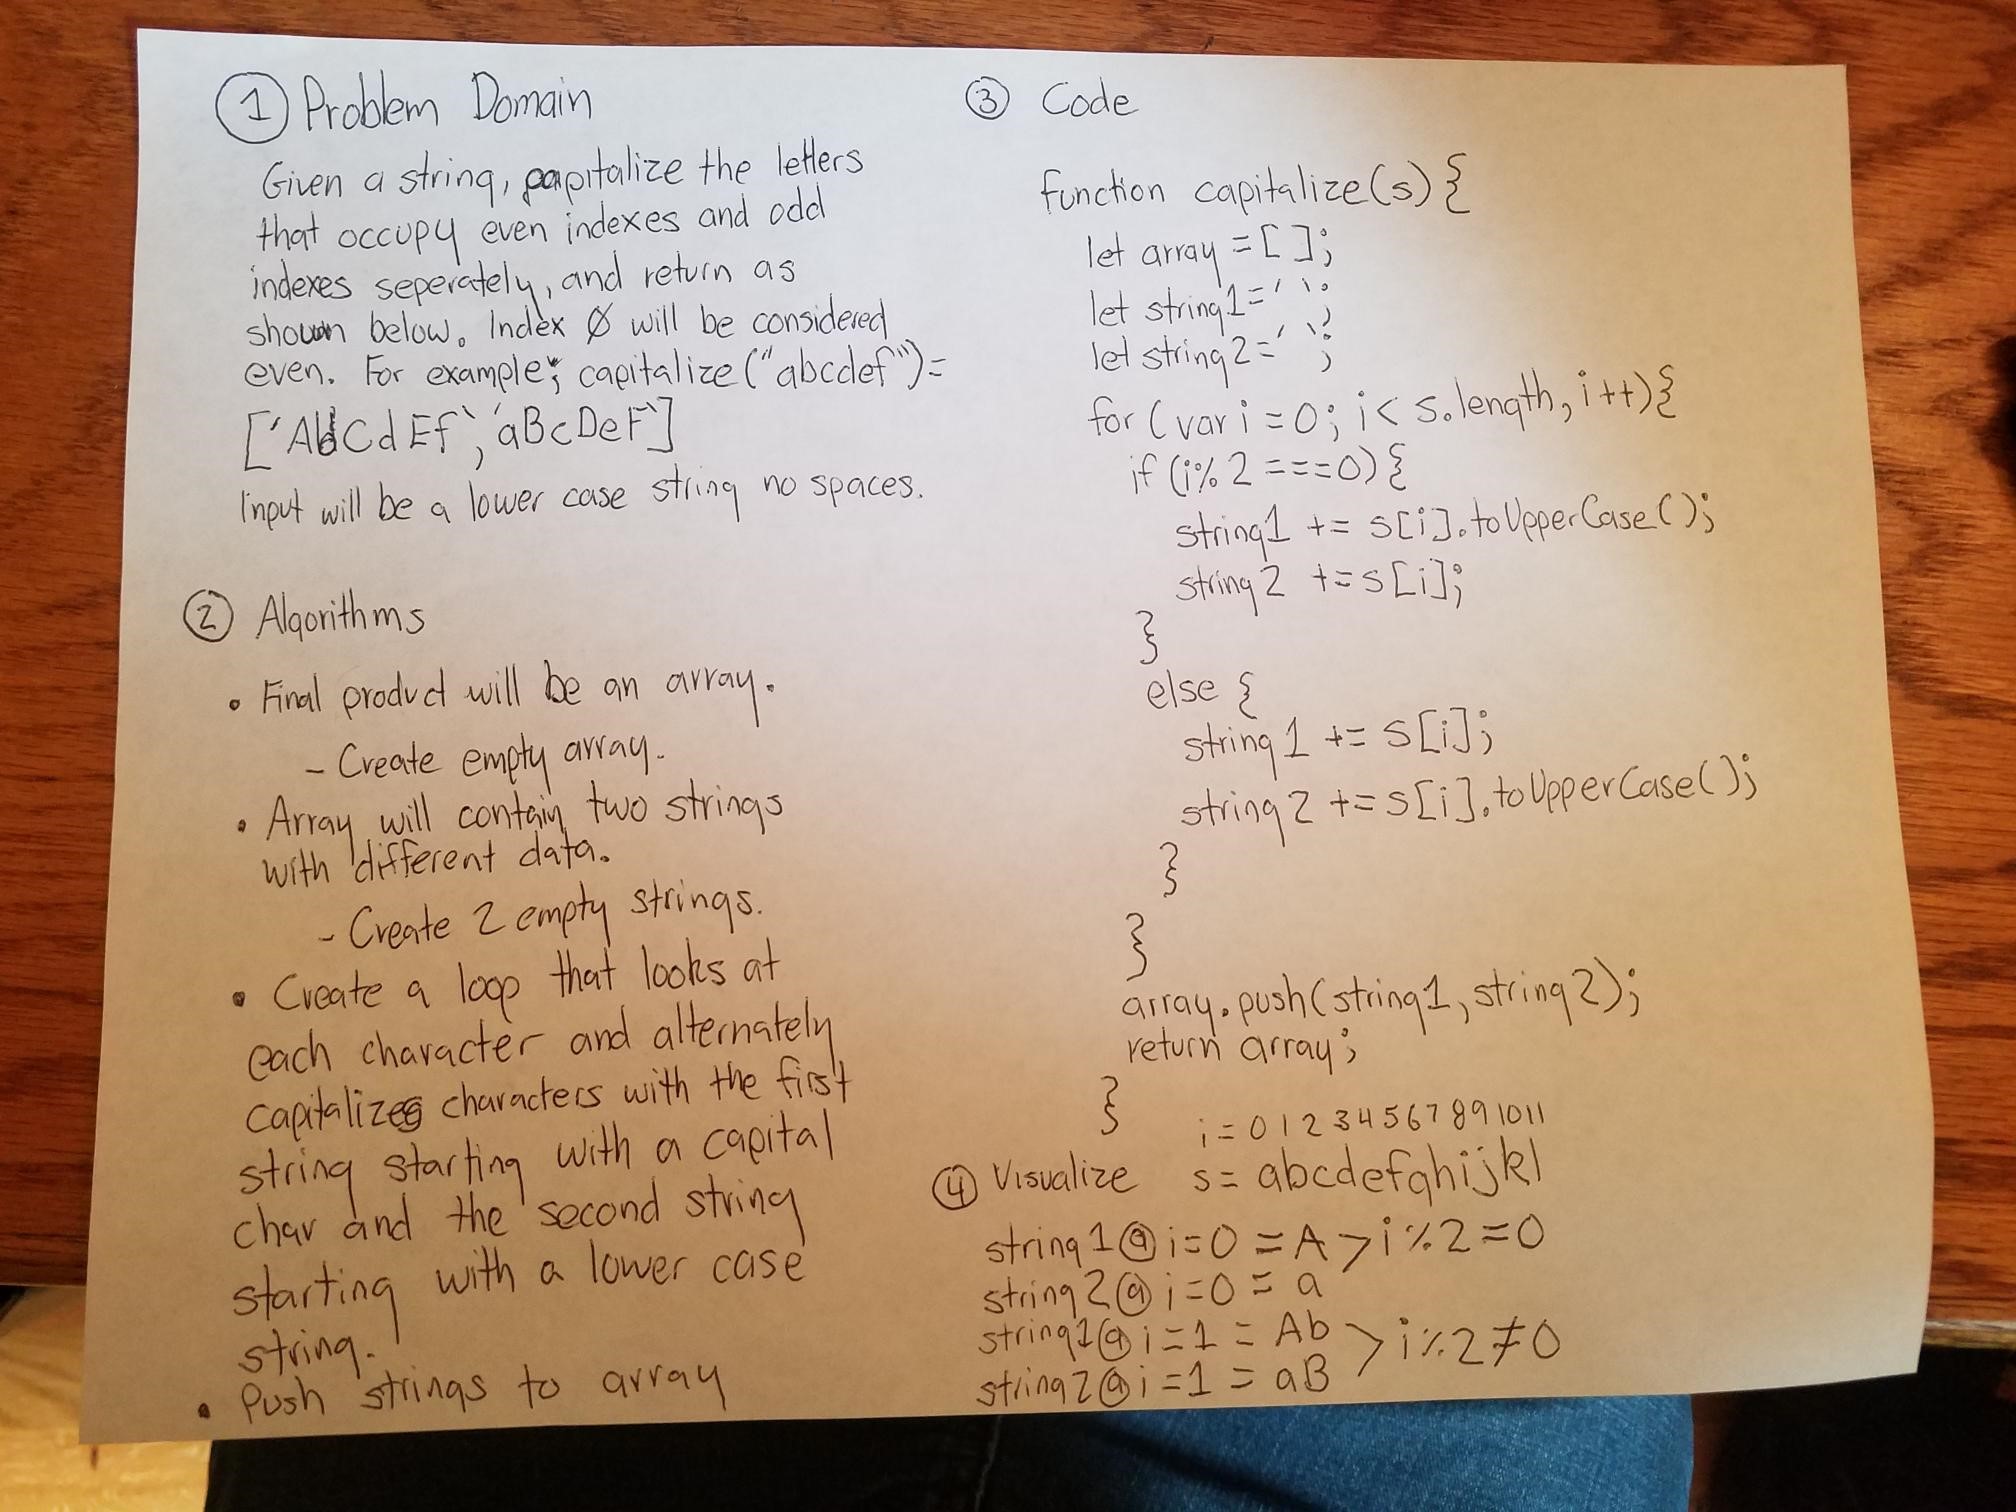 ① Problem Domain
Given a string, capitalize the letters
that occupy even indexes and odd
indexes seperately, and return as
shown below. Index Ø will be considered
even. For example; capitalize("abcdef")=
['AbCdEf', 'aBcDeF']
Input will be a lower case string no spaces.
② Algorithms
• Final product will be an array.
- Create empty array.
• Array will contain two strings
with different data.
- Create 2 empty strings.
• Create a loop that looks at
each character and alternately
capitalizes characters with the first
string starting with a capital
char and the second string
starting with a lower case
string.
• Push strings to array
③ Code
function capitalize(s){
let array = [ ];
let string1 = ' ';
let string2 = ' ';
for (var i = 0; i < s.length, i++){
if (i%2 === 0) {
string1 += s[i].toUpperCase();
string2 += s[i];
}
else {
string1 += s[i];
string2 += s[i].toUpperCase();
}
}
array.push(string1, string2);
return array;
}
i = 0 1 2 3 4 5 6 7 8 9 10 11
④ Visualize s = abcdefghijkl
string1 @ i=0 = A > i%2=0
string2 @ i=0 = a
string1 @ i=1 = Ab > i%2≠0
string2 @ i=1 = aB